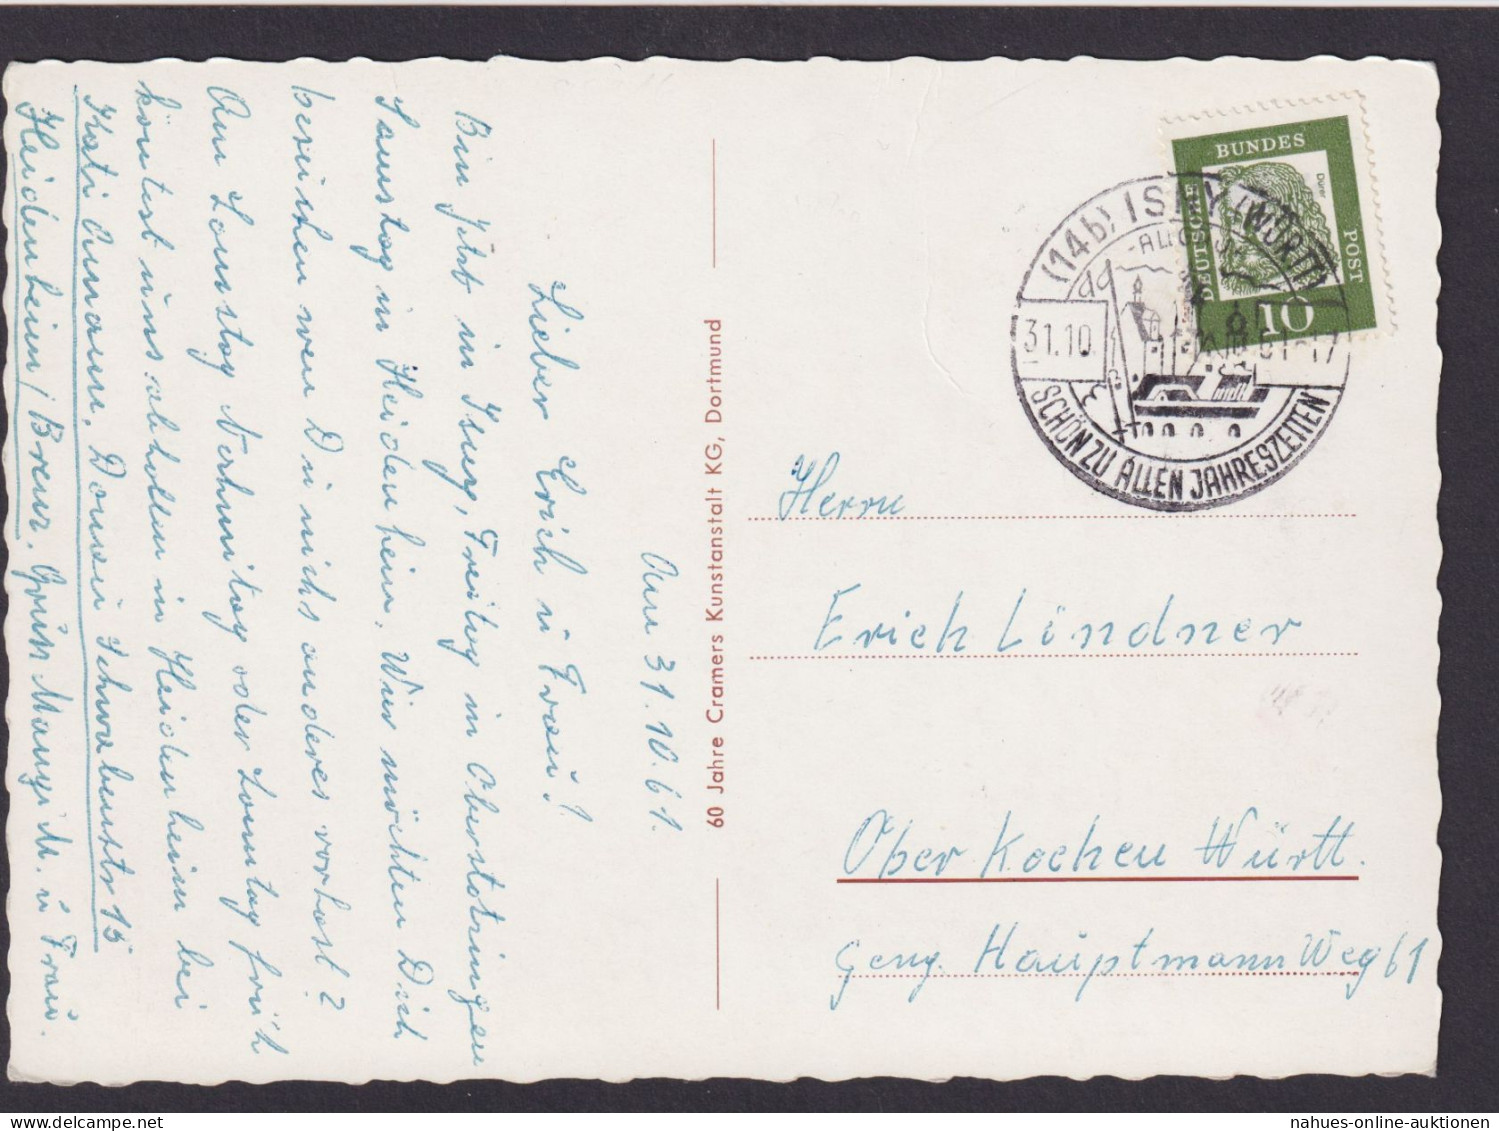 Am 31.10.61.
Lieber Erich u Frau!
Bin Jetzt in Isny, Freitag in Obersotzingen
Samstag in Heidenheim. Wir möchten Dich
besuchen wen Du nichs anderes vorhast?
Am Samstag Nachmitag oder Sonntag früh
köntest uns abholen in Heidenheim bei
Kati Amann, Donau Schwabenstr 15
Heidenheim/Brenz. Gruss M. u Frau.
60 Jahre Cramers Kunstanstalt KG, Dortmund
DEUTSCHE BUNDES POST
Dürer
10
(14b) ISNY (WÜRTT)
ALLGÄU
31.10.61-17
SCHÖN ZU ALLEN JAHRESZEITEN
Herrn
Erich Lindner
Ober Kochen Württ.
Hauptmann Weg 61
nahues-online-auktionen